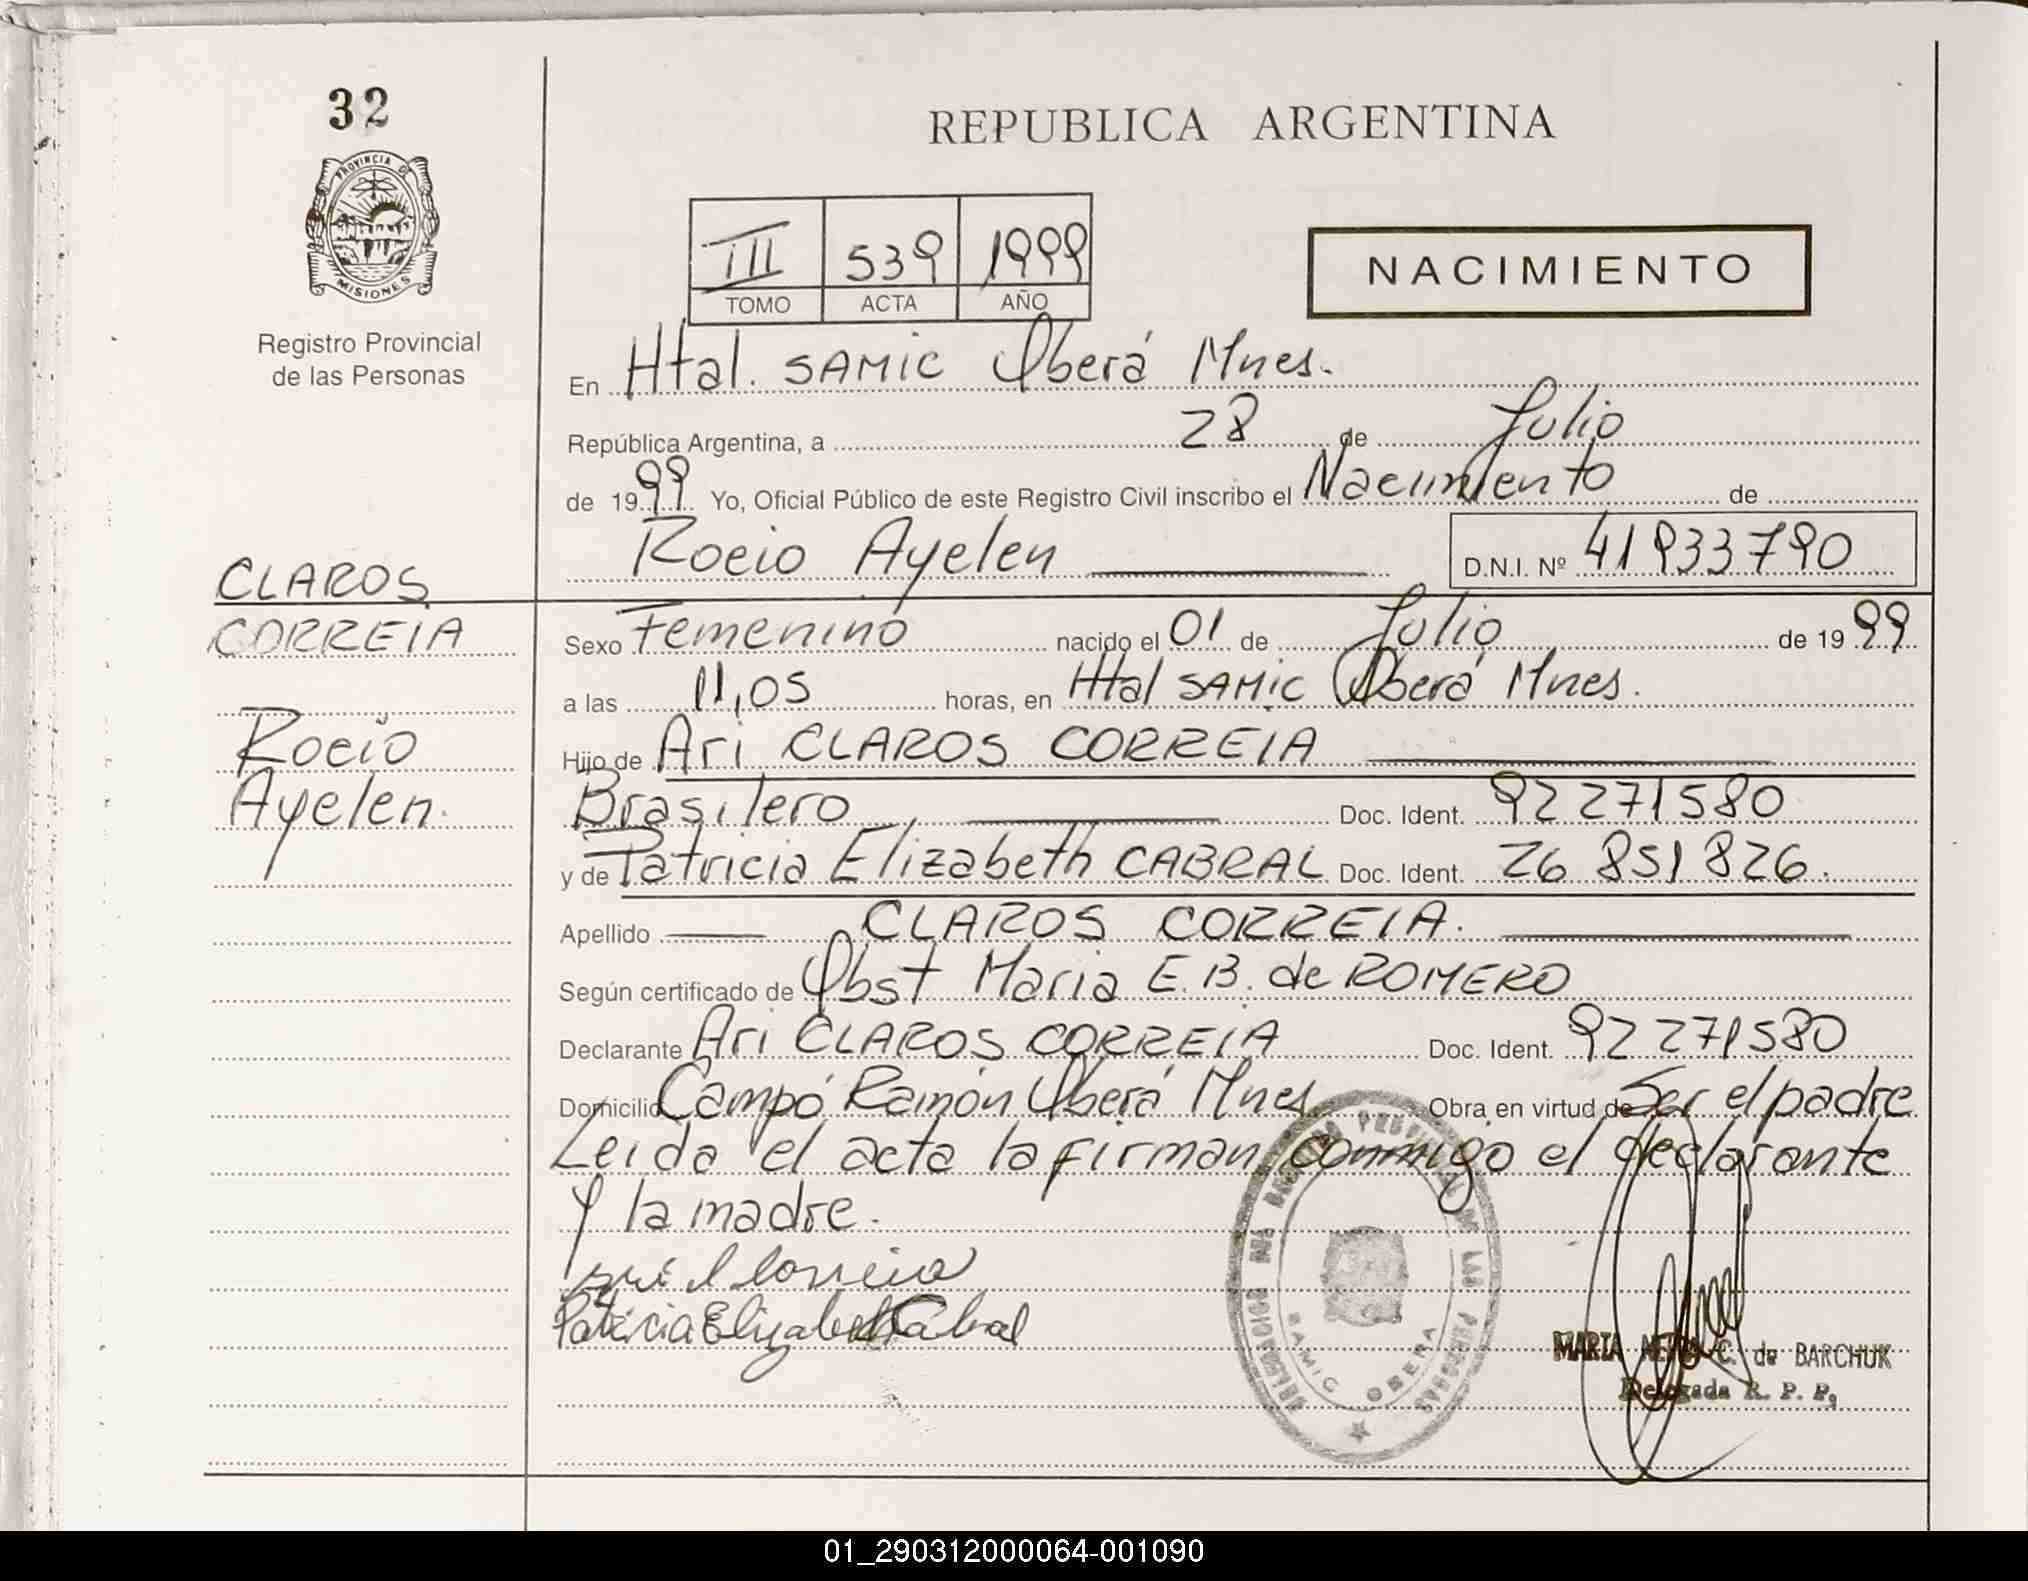 32
PROVINCIA DE
MISIONES
Registro Provincial
de las Personas
CLAROS
CORREIA
Rocio
Ayelen.
REPUBLICA ARGENTINA
III 539 1999
TOMO ACTA AÑO
NACIMIENTO
En Htal. SAMIC Oberá Mnes.
República Argentina, a 28 de Julio
de 1999 Yo, Oficial Público de este Registro Civil inscribo el Nacimiento de
Rocio Ayelen D.N.I. Nº 41933790
Sexo Femenino nacido el 01 de Julio de 1999
a las 11,05 horas, en Htal SAMIC Oberá Mnes.
Hijo de Ari CLAROS CORREIA
Brasilero Doc. Ident. 92271580
y de Patricia Elizabeth CABRAL Doc. Ident. 26 851 826.
Apellido CLAROS CORREIA.
Según certificado de Obst Maria E. B. de ROMERO
Declarante Ari CLAROS CORREIA Doc. Ident. 92 271580
Domicilio Campó Ramón Oberá Mnes Obra en virtud de Ser el padre
Leida el acta la firman conmigo el declarante
y la madre.
Patricia Elizabeth Cabral
DE LAS PERSONAS
SAMIC OBERA
MARIA C. de BARCHUK
Delegada R. P. P.
01_290312000064-001090